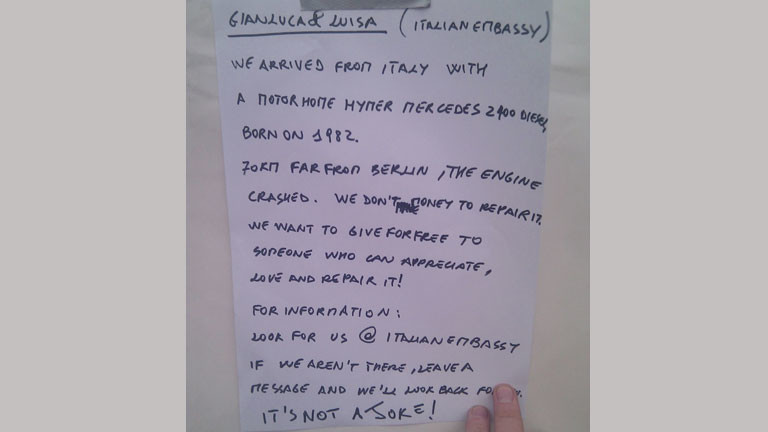 GIANLUCA & LUISA (ITALIAN EMBASSY)
WE ARRIVED FROM ITALY WITH
A MOTORHOME HYMER MERCEDES 2400 DIESEL,
BORN ON 1982.
70KM FAR FROM BERLIN, THE ENGINE
CRASHED. WE DON'T MONEY TO REPAIR IT.
WE WANT TO GIVE FOR FREE TO
SOMEONE WHO CAN APPRECIATE,
LOVE AND REPAIR IT!
FOR INFORMATION:
LOOK FOR US @ ITALIAN EMBASSY
IF WE AREN'T THERE, LEAVE A
MESSAGE AND WE'LL LOOK BACK
IT'S NOT A JOKE!